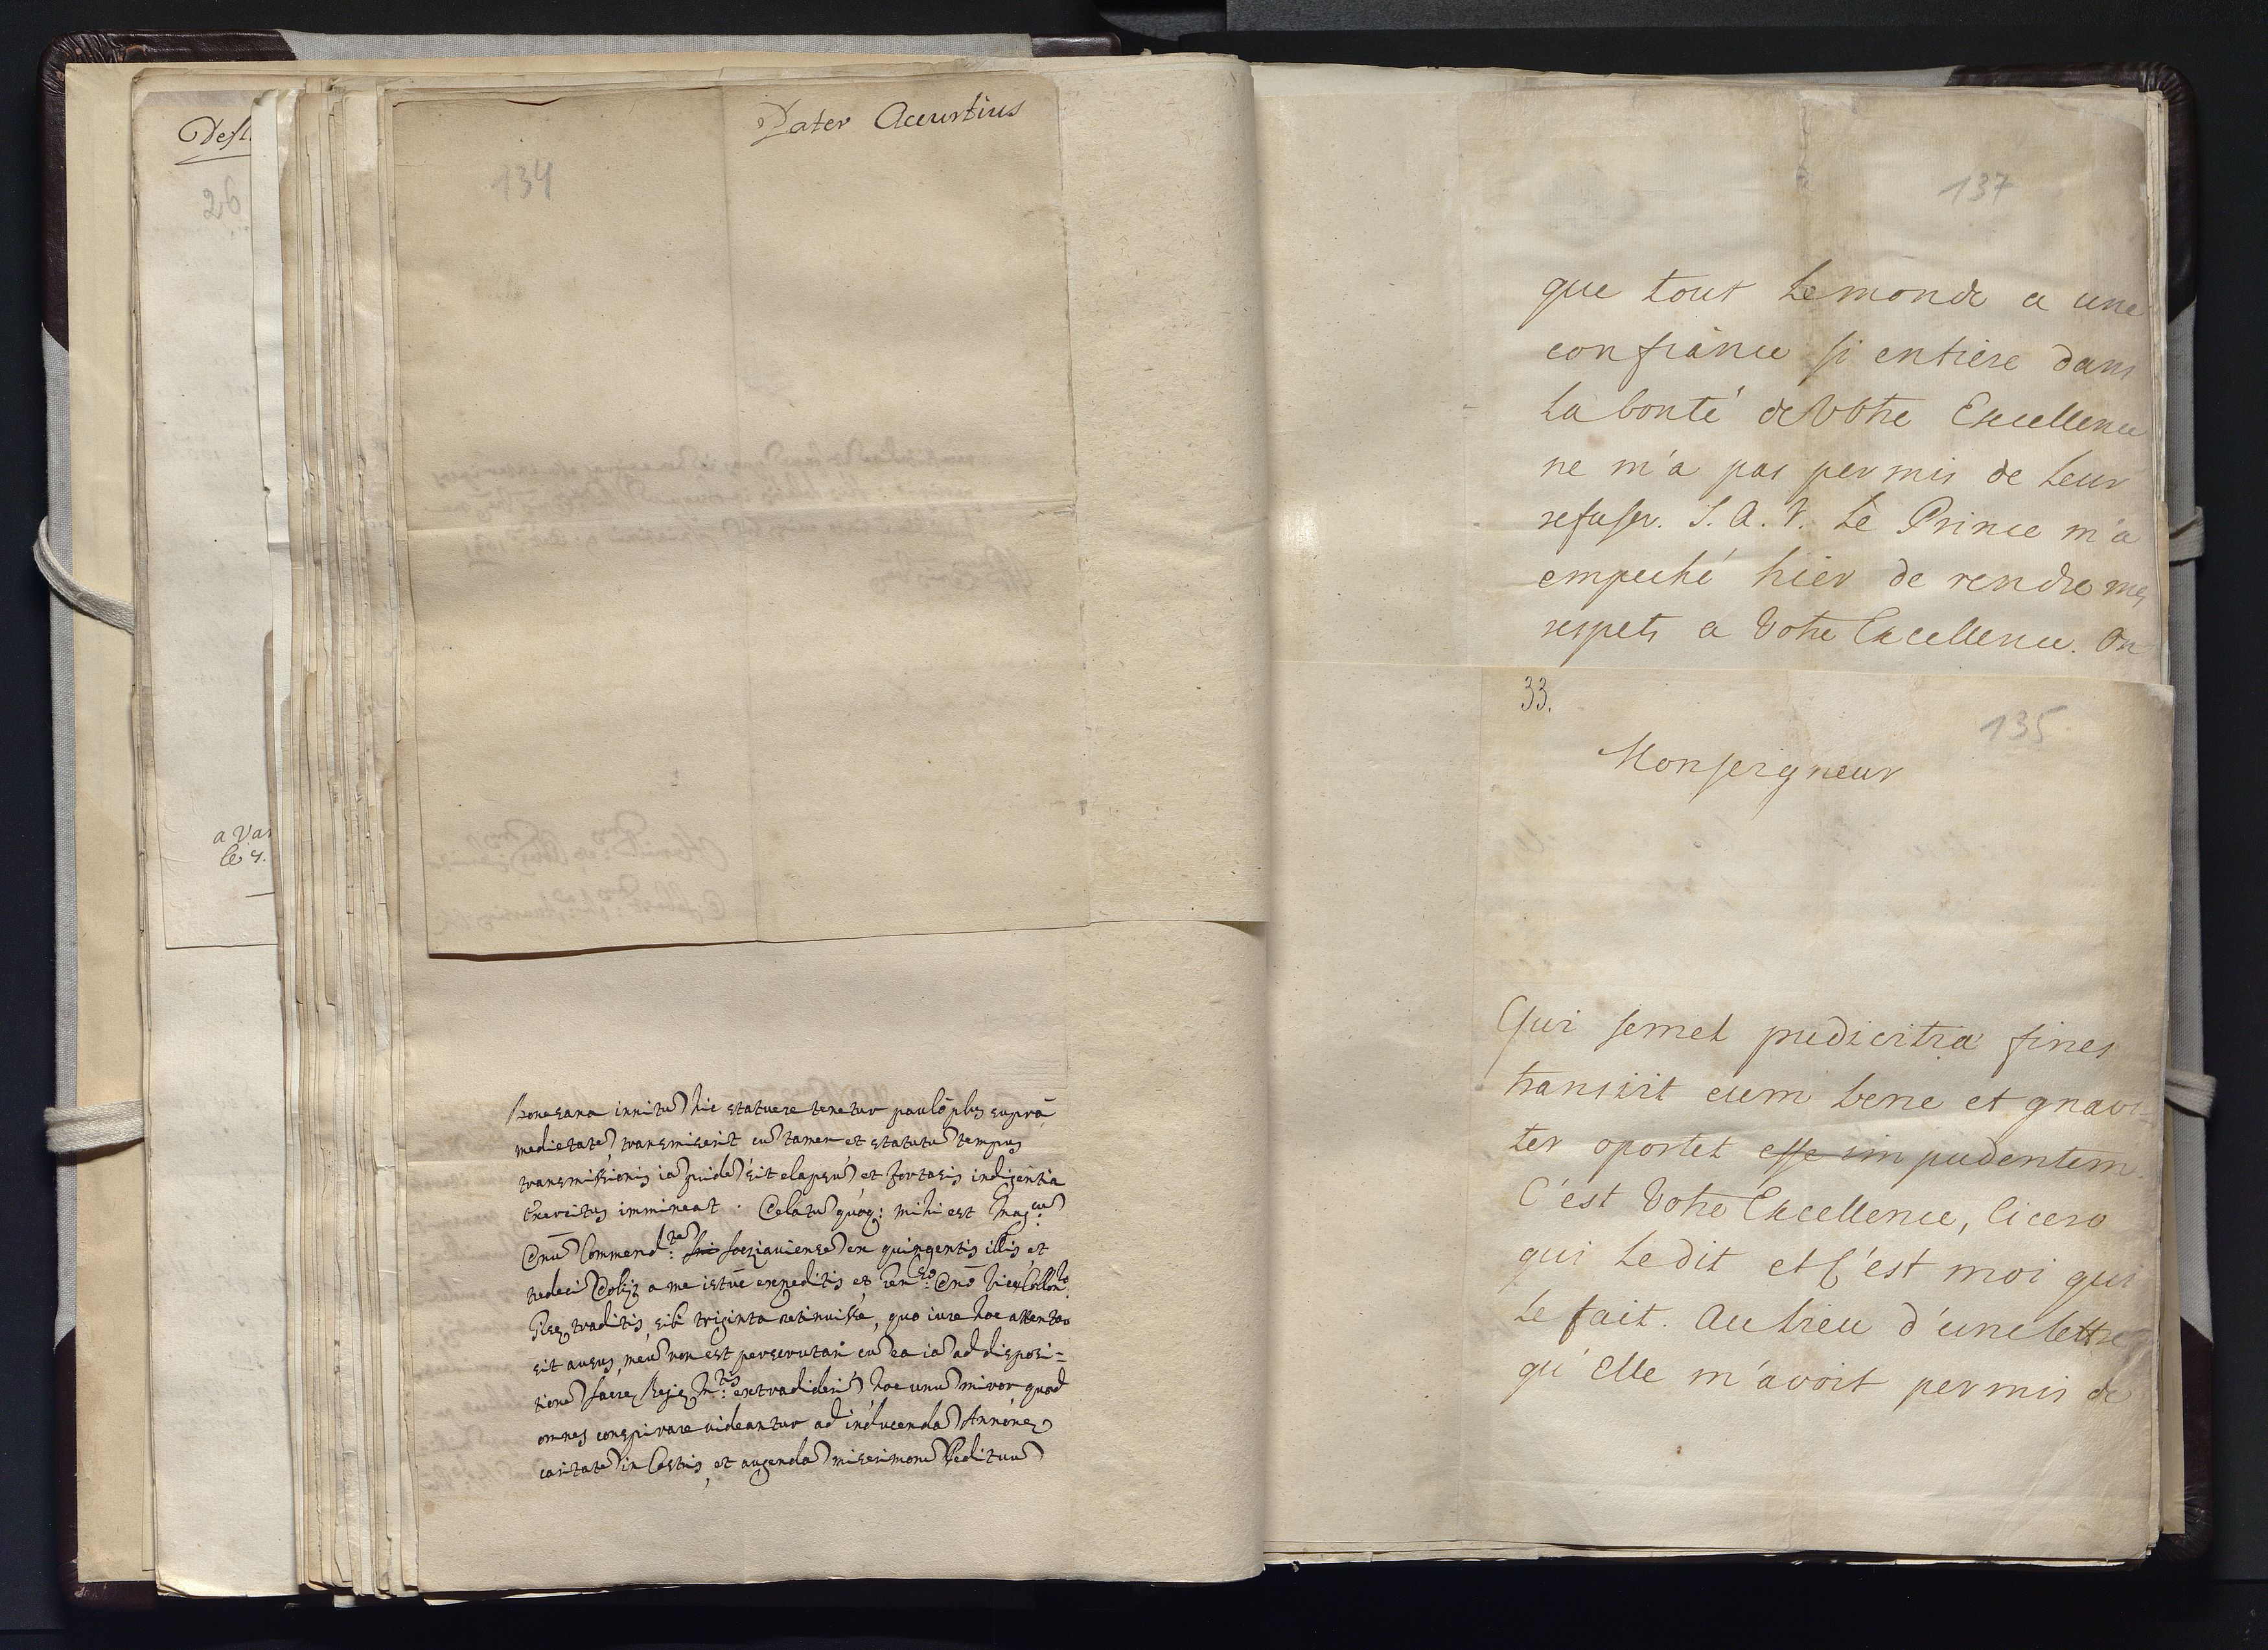 Pater Accurtius
134
26
a Var
le 4.
innitu hic statuere tenetur paulo plus supra
medietate transmiserit cu tamen et statutu tempus
transmissionis ia pride sit elapsu et fortasis indigentia
Exercitus immineat. Celatu quoq: mihi est
Commend: ex quingentis illis, et
a me istuc expeditis et
traditis, sibi triginta retinuisse, quo iure hoc attentare
sit ausus, meu non est perscrutari cu ea ia ad disposi=
tione Sacræ Regiæ extradideri hoc unu miror quod
omnes conspirare videantur ad inducenda Annonæ
caritate in Castris, et augenda miserimoru Peditum
137
que tout Le monde a une
confiance si entiere dans
La bonté de Votre Excellence
ne m'a pas permis de Leur
refuser. S. A. R. Le Prince m'a
empeché hier de rendre mes
respets a Votre Excellence. On
33.
135
Monseigneur
Qui semel pudicitiæ fines
transiit eum bene et gnavi-
ter oportet esse impudentem.
C'est Votre Excellence, Cicero
qui Le dit et c'est moi qui
Le fait. Au lieu d'une lettre
qu'Elle m'avoit permis de